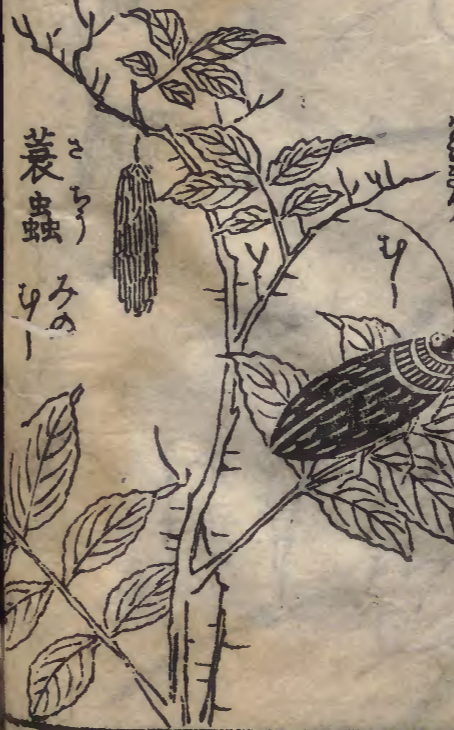 むし
蓑蟲
さちう
みの
むし